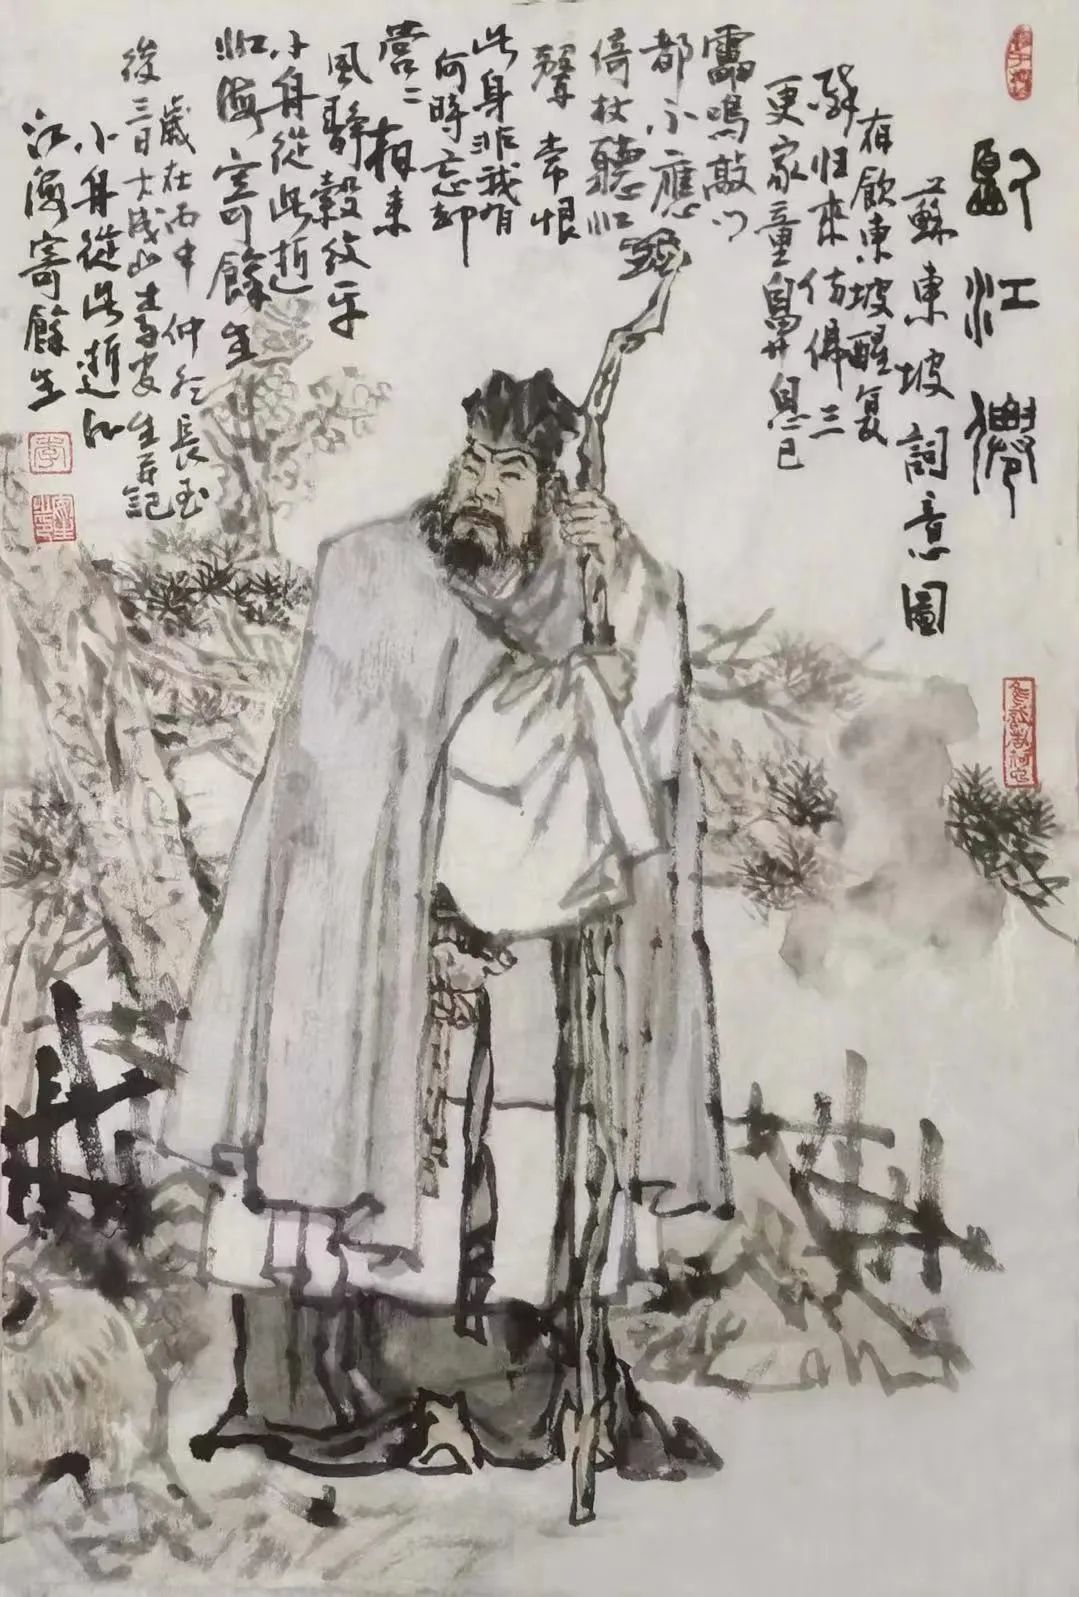 臨江僊
蘇東坡詞意圖
有飲東坡醒复
醉归來仿佛三
更家童鼻息已
雷鳴敲门
都不應
倚杖聽江
聲 常恨
此身非我有
何時忘却
營二
風靜縠紋平
小舟從此逝
江海寄餘生
歲在丙申仲冬長玉
後三日大成山生并記
小舟從此逝
江海寄餘生